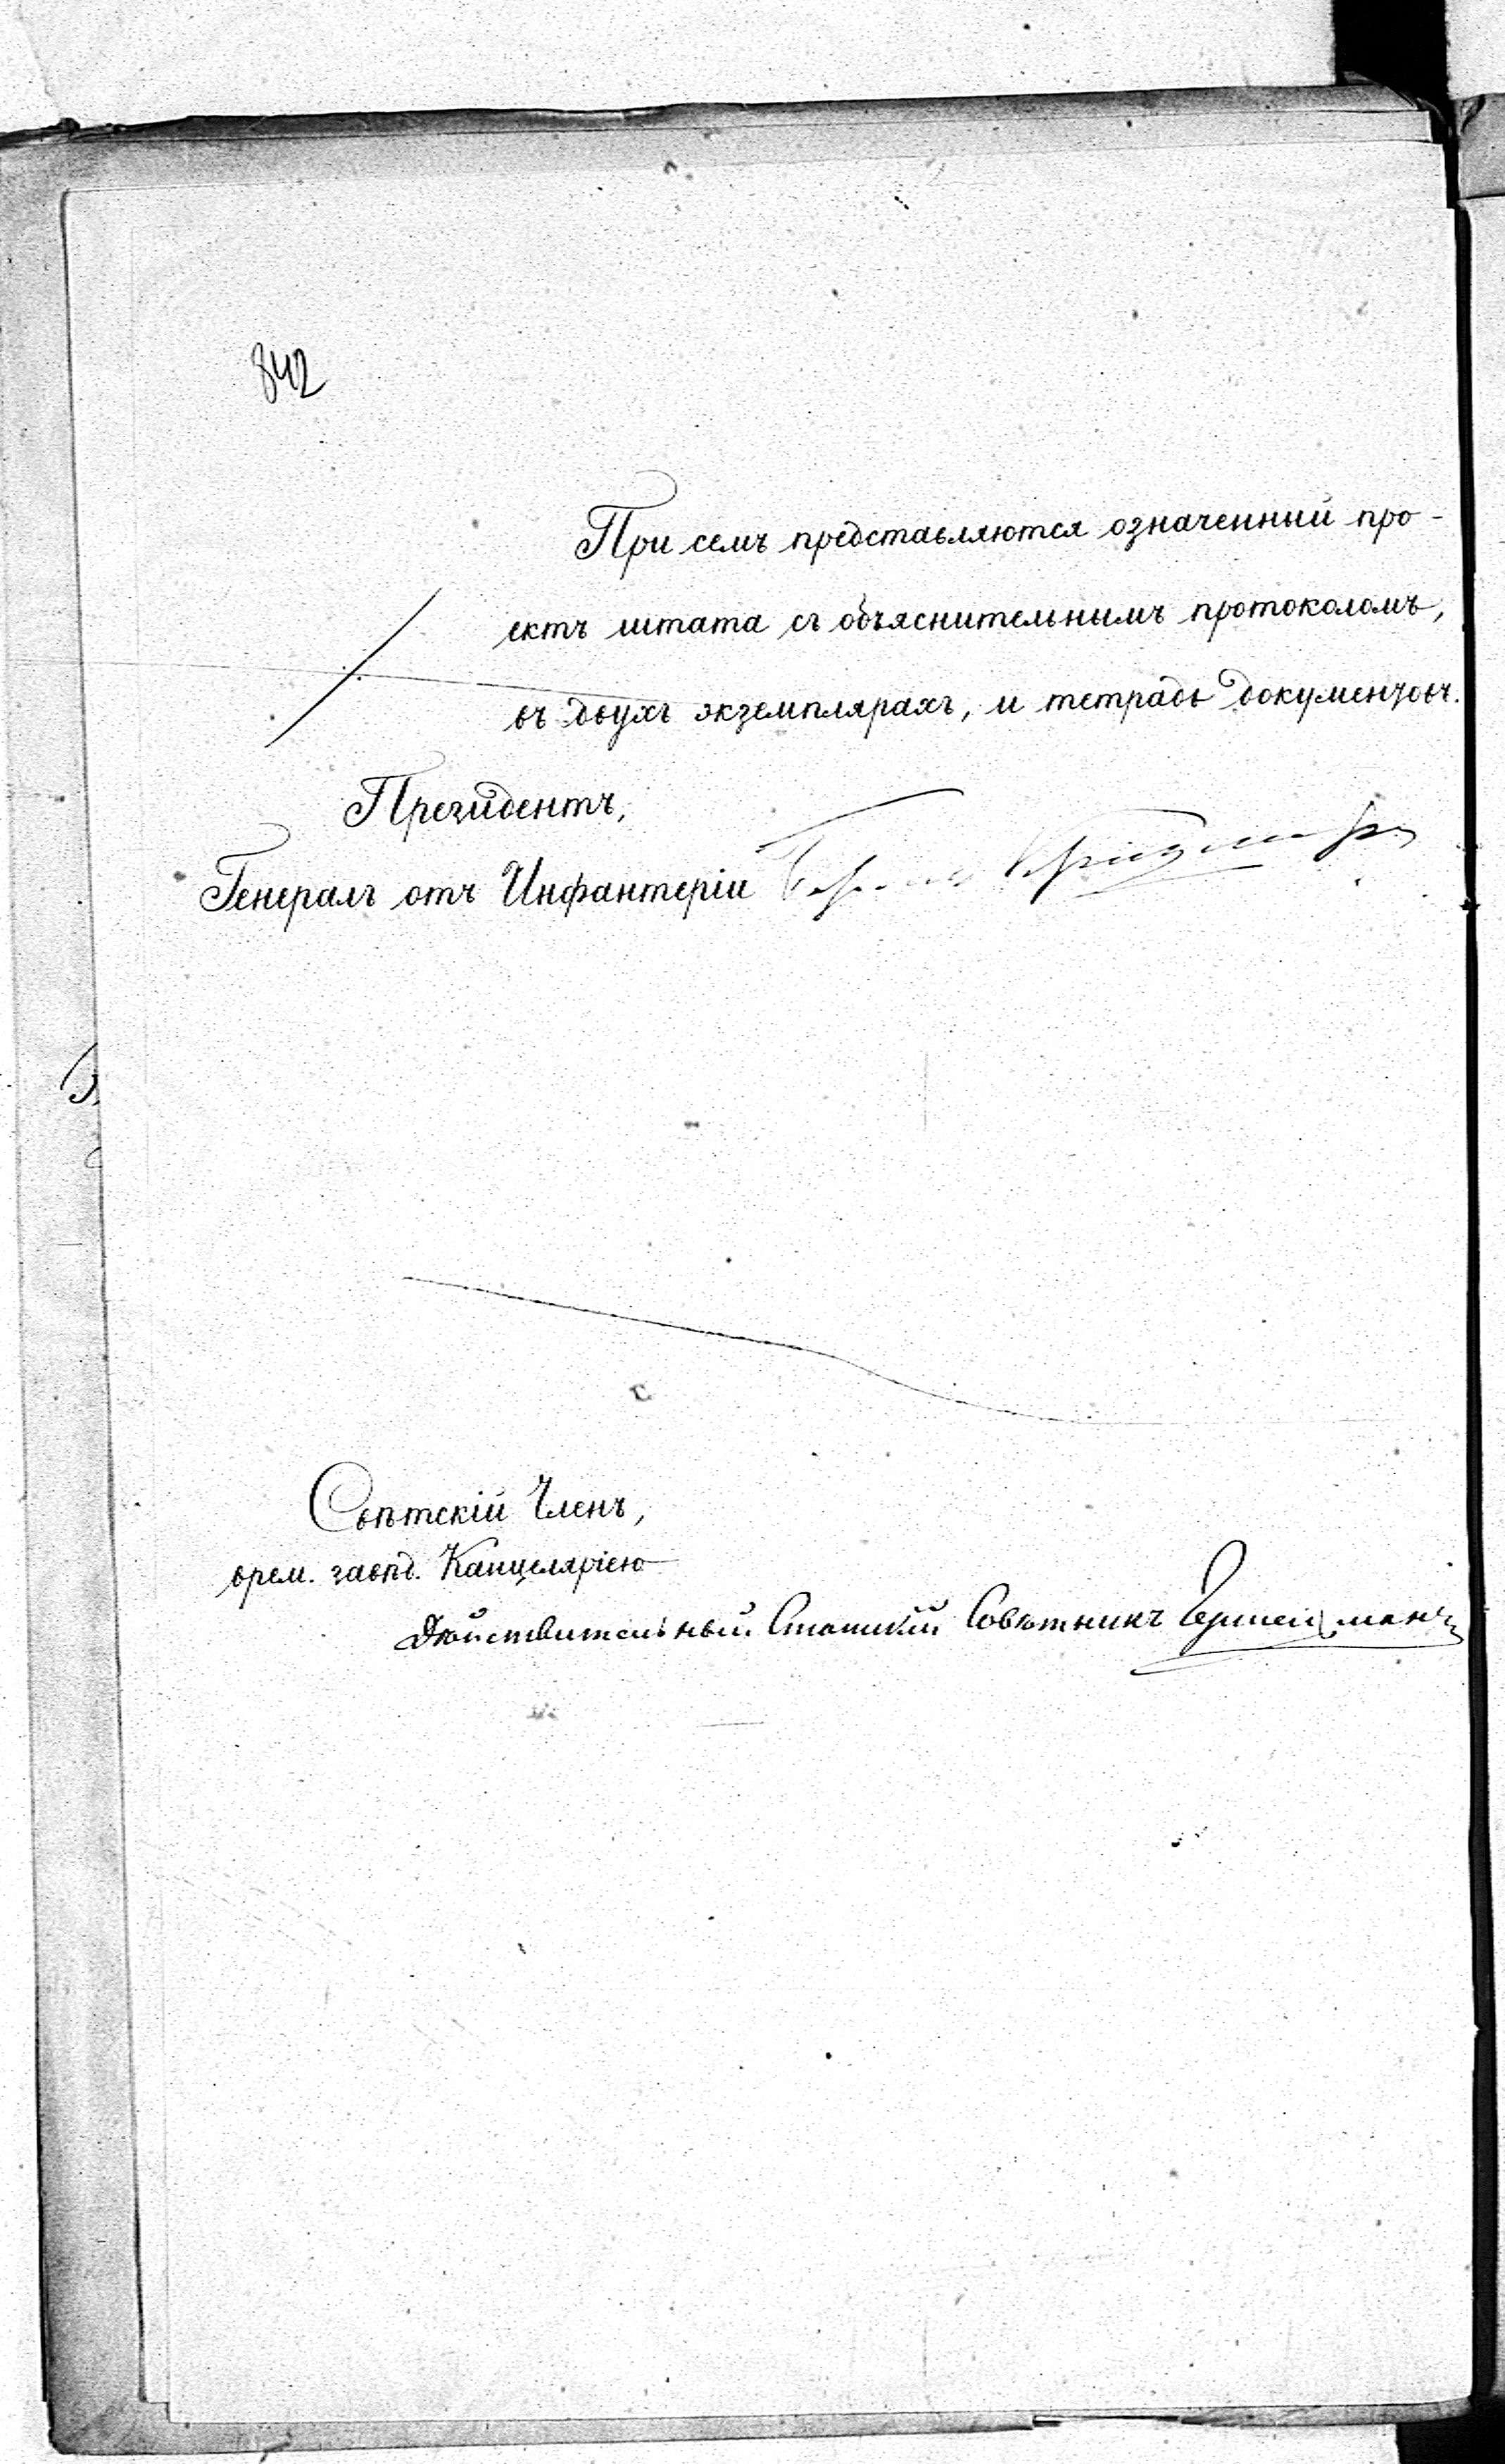 842
При семъ представляются означенный про-
ектъ штата съ объяснительнымъ протоколомъ,
въ двухъ экземплярахъ, и тетрадь документовъ.
Президентъ,
Генералъ отъ Инфантеріи Баронъ
Свѣтскій Членъ,
врем. завѣд. Канцеляріею
Дѣйствительный Статскій Совѣтникъ